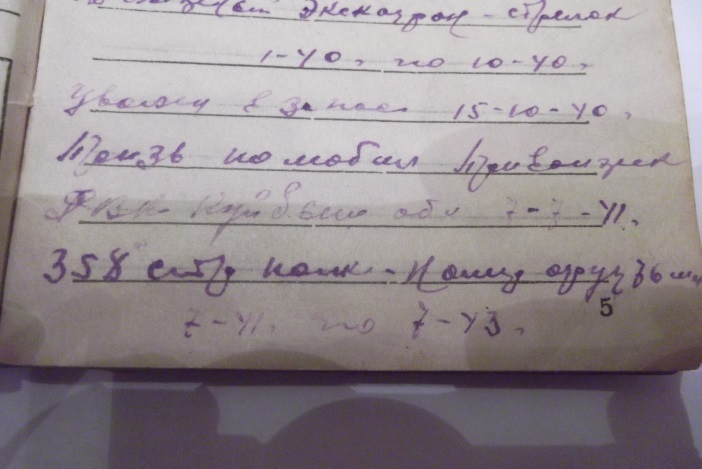 эскадрон - стрелок
1-40. по 10-40.
Уволен в запас 15-10-40.
Призв по мобил Приволжск
РВК Куйбыш обл 7-7-41.
358 стр полк - Команд
7-41. по 7-43.
5